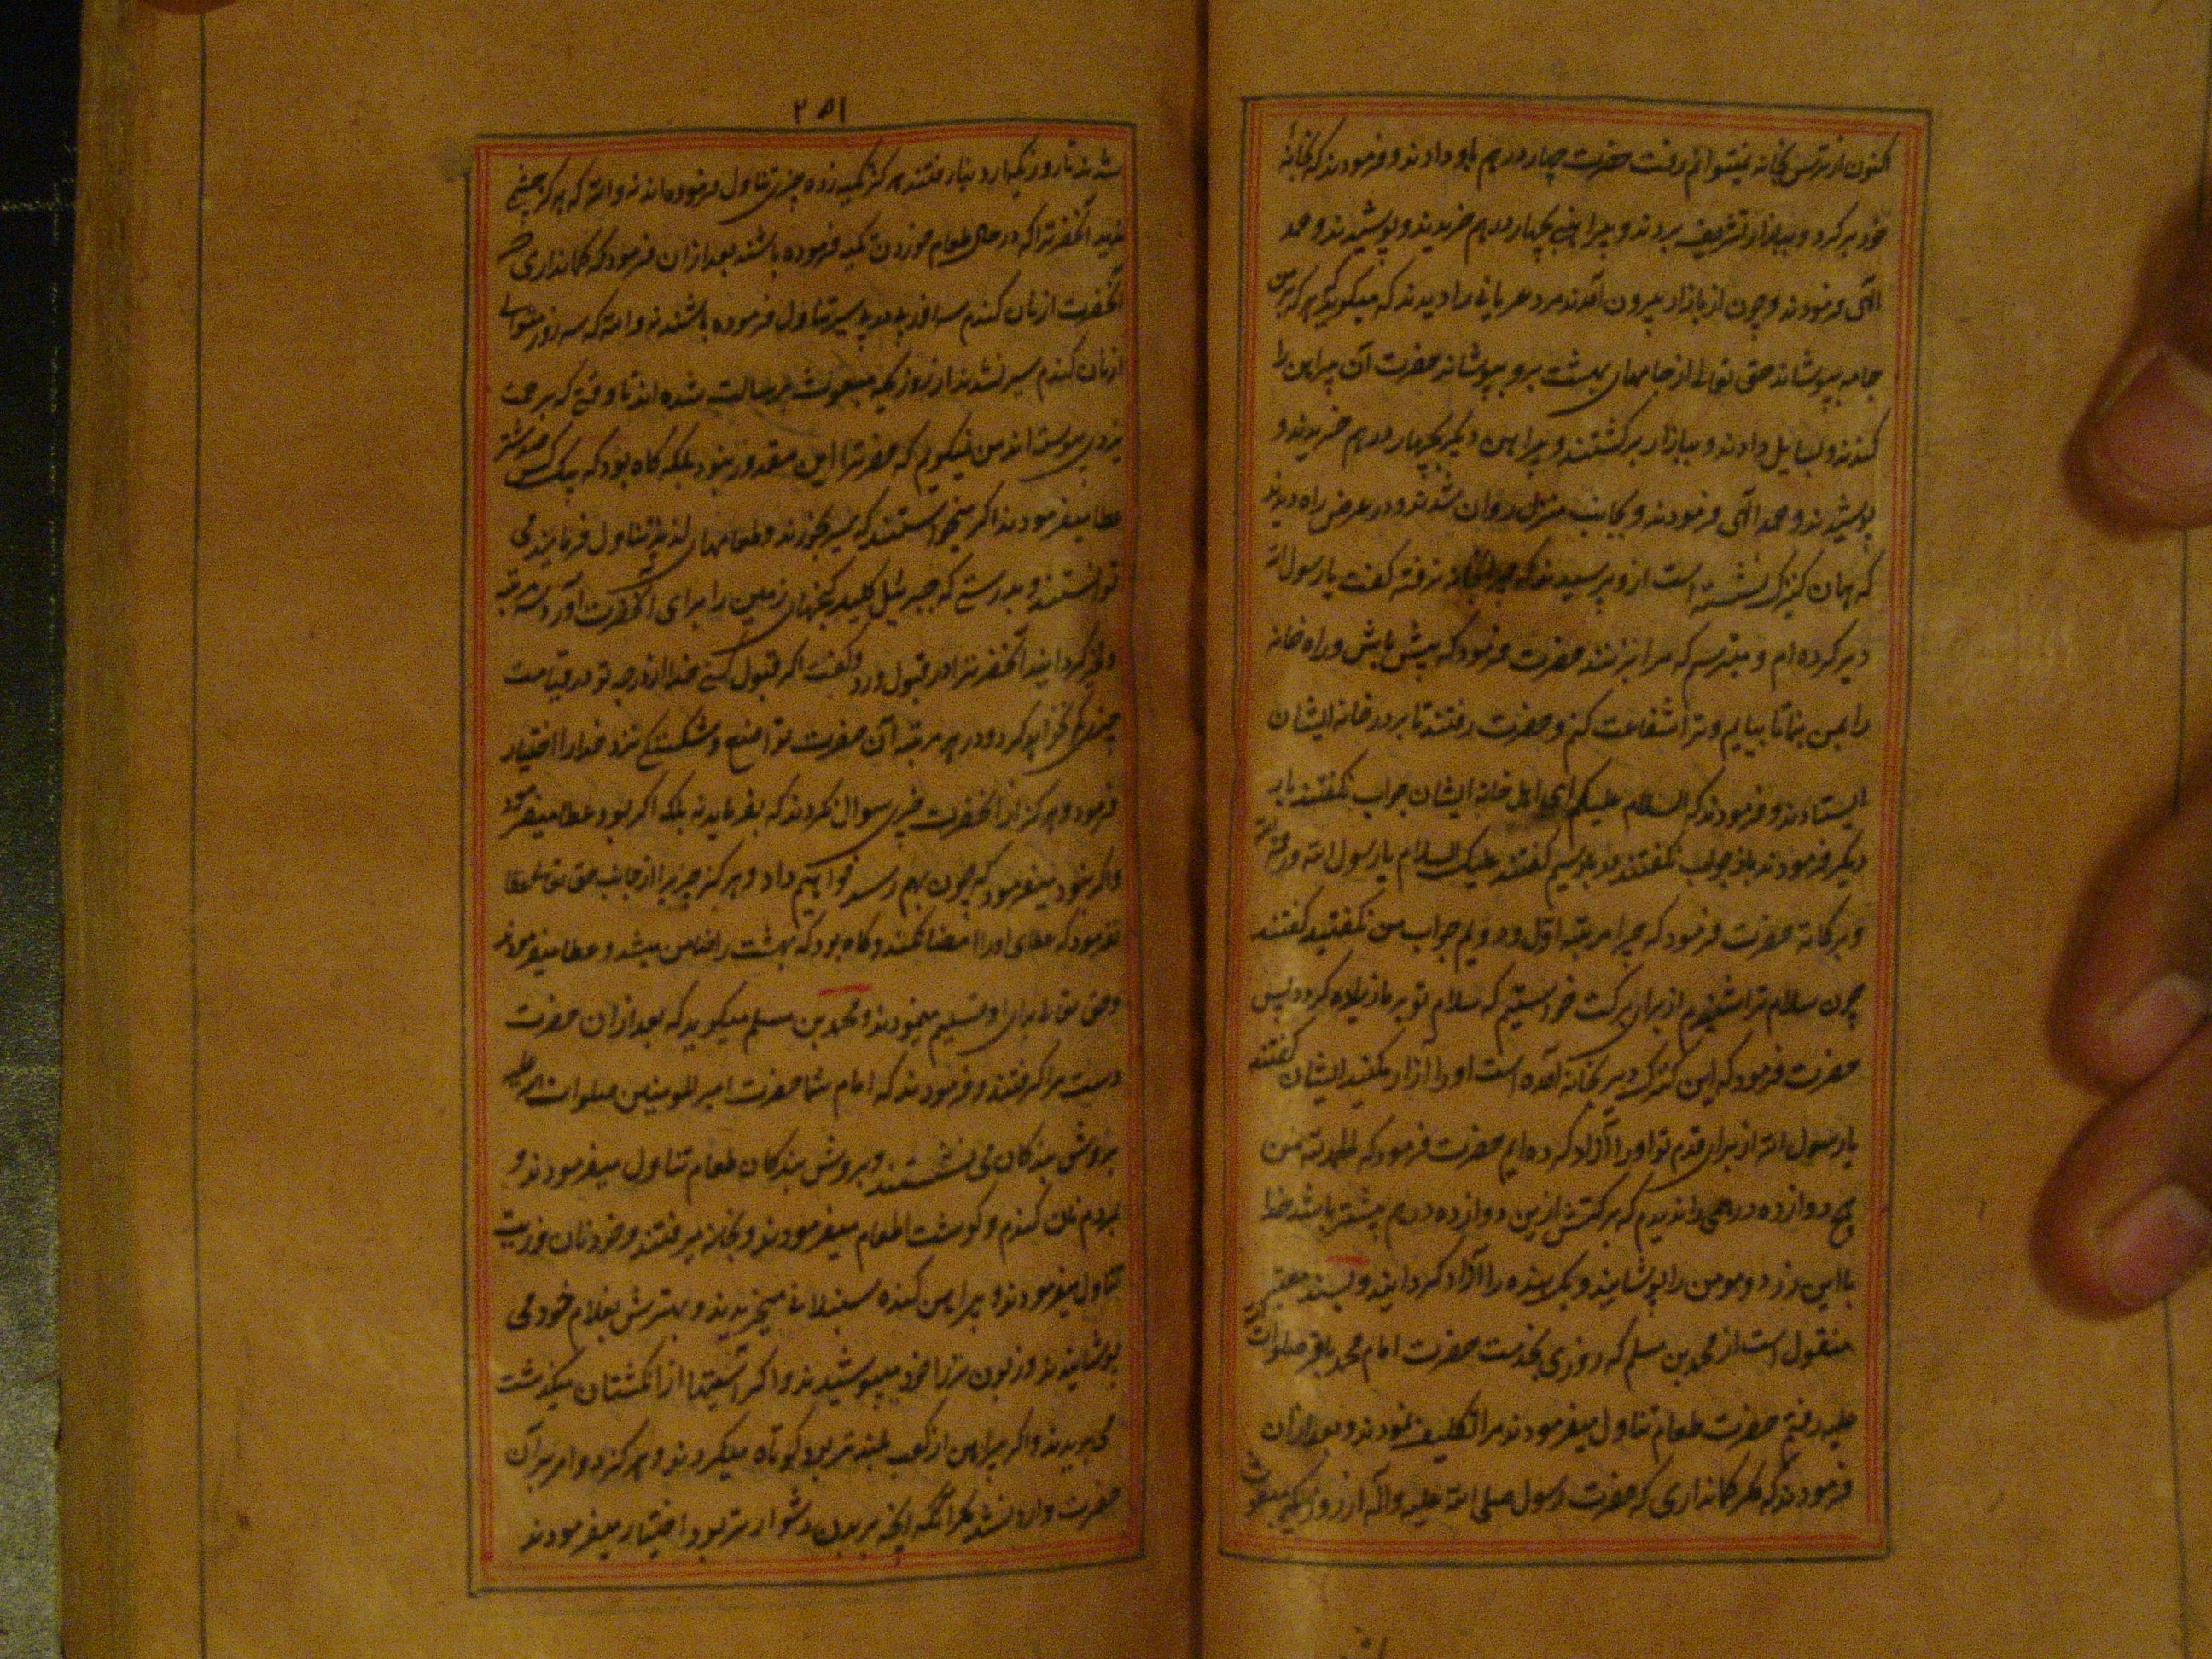 اکنون از ترس بخانه نمیتوانم رفت حضرت چهار درهم باو دادند و فرمودند که بخانهٔ
خود برگرد و ببازار تشریف بردند و پیراهنی بچهار درهم خریدند و پوشیدند و حمد
الهی فرمودند و چون از بازار بیرون آمدند مرد عریانی را دیدند که میگوید هر که بمن
جامه بپوشاند حق تعالی از جامهای بهشت برو بپوشاند حضرت آن پیراهن را
کندند و بسایل دادند و ببازار برگشتند و پیراهن دیگر بچهار درهم خریدند و
پوشیدند و حمد الهی فرمودند و بجانب منزل روان شدند و در عرض راه دیدند
که همان کنیزک نشسته است ازو پرسیدند که چرا بخانه نرفته گفت یا رسول الله
دیر کرده ام و میترسم که مرا بزنند حضرت فرمود که پیش باش و راه خانه
را بمن بنما تا بیایم و ترا شفاعت کنم و حضرت رفتند تا بر در خانه ایشان
ایستادند و فرمودند که السلام علیکم ای اهل خانه ایشان جواب نگفتند بار
دیگر فرمودند باز جواب نگفتند در بار سیم گفتند علیک السلام یا رسول الله و رحمة الله
و برکاته حضرت فرمود که چرا مرتبه اول و دویم جواب من نگفتید گفتند
چون سلام ترا شنیدیم از برای برکت خواستیم که سلام تو بر ما زیاده گردد پس
حضرت فرمود که این کنیزک دیر بخانه آمده است او را آزار مکنید ایشان گفتند
یا رسول الله از برای قدم تو او را آزاد کرده ایم حضرت فرمود که الحمد لله من
هیچ دوازده درهمی را ندیدم که برکتش ازین دوازده درهم بیشتر باشد خدا
باین زر دو مومن را پوشانید و یک بنده را آزاد گردانید و بسند معتبر
منقول است از محمد بن مسلم که روزی بخدمت حضرت امام محمد باقر صلوات الله
علیه رفتم حضرت طعام تناول میفرمودند مرا تکلیف نمودند و بعد از آن
فرمودند که مگر گمانداری که حضرت رسول صلی الله علیه و آله از روزیکه مبعوث
۲۵۱
شدند تا روزیکه از دنیا رفتند هرگز تکیه زده چیزی تناول فرموده اند نه والله که هرگز چشمی
ندید آنحضرترا که در حال طعام خوردن تکیه فرموده باشند بعد از آن فرمود که گمانداری که
آنحضرت از نان گندم سه روز پی در پی سیر تناول فرموده باشند نه والله که سه روز متوالی
از نان گندم سیر نشدند از روزیکه مبعوث برسالت شده اند تا وقتی که برحمت
ایزدی پیوسته اند من نمیگویم که حضرترا این مقدور نبود بلکه گاه بود که بیک کس صد شتر
عطا میفرمودند اگر میخواستند که سیر بخورند و طعامهای لذیذ تناول فرمایند می
توانستند و بدرستی که جبرئیل کلید گنجهای زمین را برای آنحضرت آورد سه مرتبه
و مخیر گردانید آنحضرترا در قبول و رد و گفت اگر قبول کنی خدا از درجه تو در قیامت
چیزی کم نخواهد کرد و در هر مرتبه آن حضرت تواضع و شکستگی نزد خدا را اختیار
فرمود و هرگز از آنحضرت چیزی سوال نکردند که بفرماید نه بلکه اگر بود عطا میفرمود
و اگر نبود میفرمود که چون بهم رسد خواهیم داد و هرگز چیزیرا از جانب حق تعالی عطا
نفرمود که خدای او را امضا نکند و گاه بود که بهشت را ضامن میشد و عطا میفرمودند
و حق تعالی برای او تسلیم مینمودند و محمد بن مسلم میگوید که بعد از آن حضرت
دست مرا گرفتند و فرمودند که امام شما حضرت امیر المومنین صلوات الله علیه
بروش بندگان می نشستند و بروش بندگان طعام تناول میفرمودند و
بمردم نان گندم و گوشت اطعام میفرمودند و بخانه میرفتند و خود نان و زیت
تناول میفرمودند و پیراهن کنده سنبلانی میخریدند و بهترش بغلام خود می
پوشانیدند و زبون تر را خود میپوشیدند و اگر آستینها از انگشتان میگذشت
می بریدند و اگر پیراهن از کعب بلندتر بود کوتاه میکردند و هرگز دو امر بر آن
حضرت وارد نشد مگر آنکه آنچه بر بدن دشوارتر بود اختیار میفرمودند